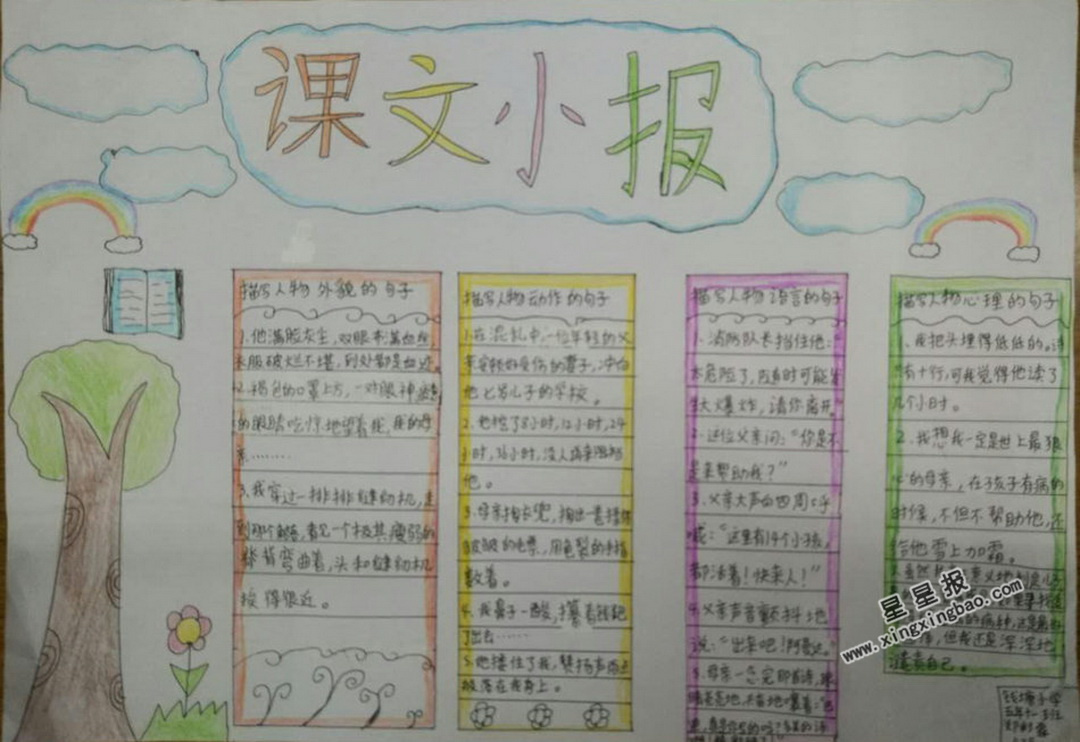 课文小报
描写人物外貌的句子
1.他满脸灰尘,双眼布满血丝,
衣服破烂不堪,到处都是血迹。
2.褐色的口罩上方,一对眼神疲惫
的眼睛吃惊地望着我,我的母
亲……
3.我穿过一排排缝纫机,走
到那个角落,看见一个极其瘦弱的
脊背弯曲着,头和缝纫机
挨得很近。
描写人物动作的句子
1.在混乱中,一位年轻的父
亲安顿好受伤的妻子,冲向
他七岁儿子的学校。
2.他挖了8小时,12小时,24
小时,36小时,没人再来阻挡
他。
3.母亲掏衣兜,掏出一卷揉得
皱皱的毛票,用龟裂的手指
数着。
4.我鼻子一酸,攥着钱跑
了出去……
5.她搂住了我,赞扬声雨点
般落在我身上。
描写人物语言的句子
1.消防队长挡住他:
太危险了,随时可能发
生大爆炸,请你离开"
2.这位父亲问:"你是不
是来帮助我?"
3.父亲大声向四周呼
喊:"这里有14个小孩,
都活着!快来人!"
4.父亲声音颤抖地
说:"出来吧!阿曼达。"
5.母亲一念完那首诗,眼
睛亮亮地,兴奋地嚷着:"巴
描写人物心理的句子
1、我把头埋得低低的。诗
有十行,可我觉得他读了
几个小时。
2.我想我一定是世上最狠
心的母亲,在孩子有病的
时候,不但不帮助他,还
给他雪上加霜。
的病种,这是最
但我还是深深地
谴责自己。
星星报
www.xingxingbao.com